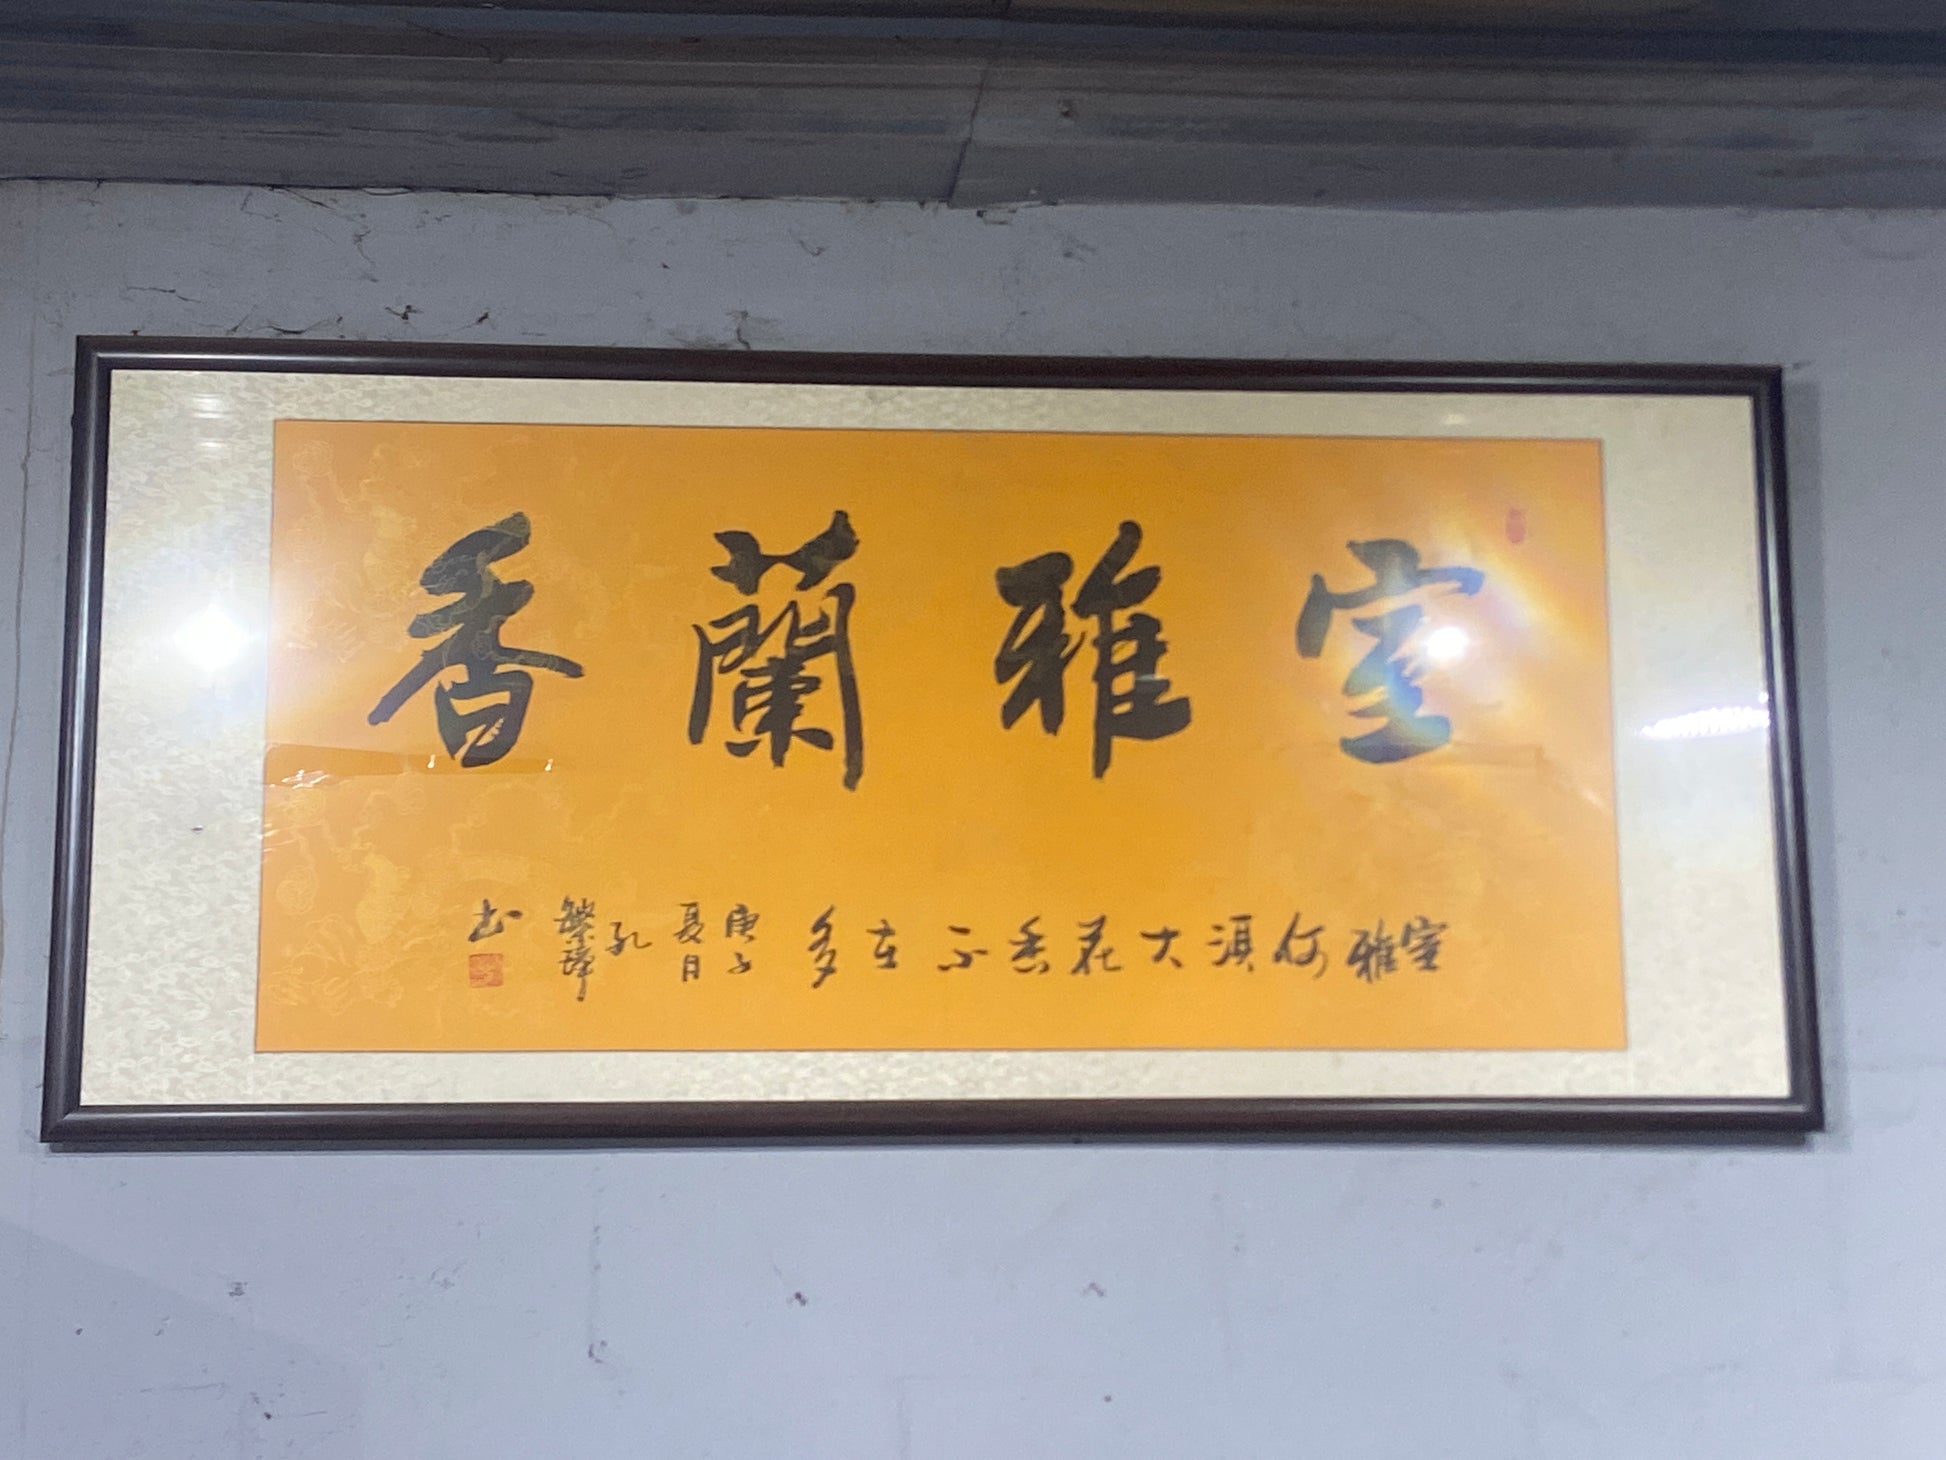 室雅蘭香
室雅何須大花香不在多
庚子
夏月
孔
繁璋
书